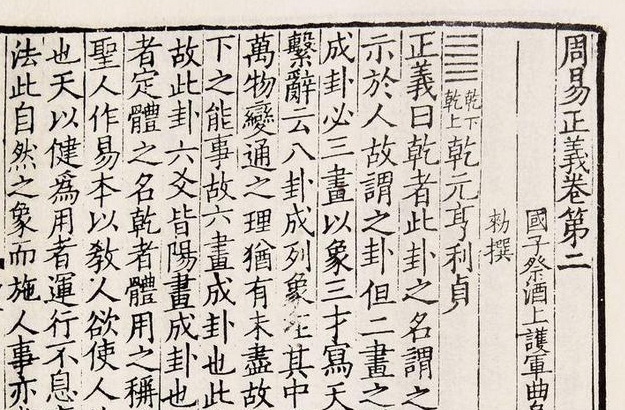 周易正義卷第二
國子祭酒上護軍曲
勑撰
乾下乾上乾元亨利貞
正義曰乾者此卦之名謂之
示於人故謂之卦但二畫之
成卦必三畫以象三才寫天
繫辭云八卦成列象在其中
萬物變通之理猶有未盡故
下之能事故六畫成卦也此
故此卦六爻皆陽畫成卦也
者定體之名乾者體用之稱
聖人作易本以教人欲使人
也天以健為用者運行不息
法此自然之象而施人事亦